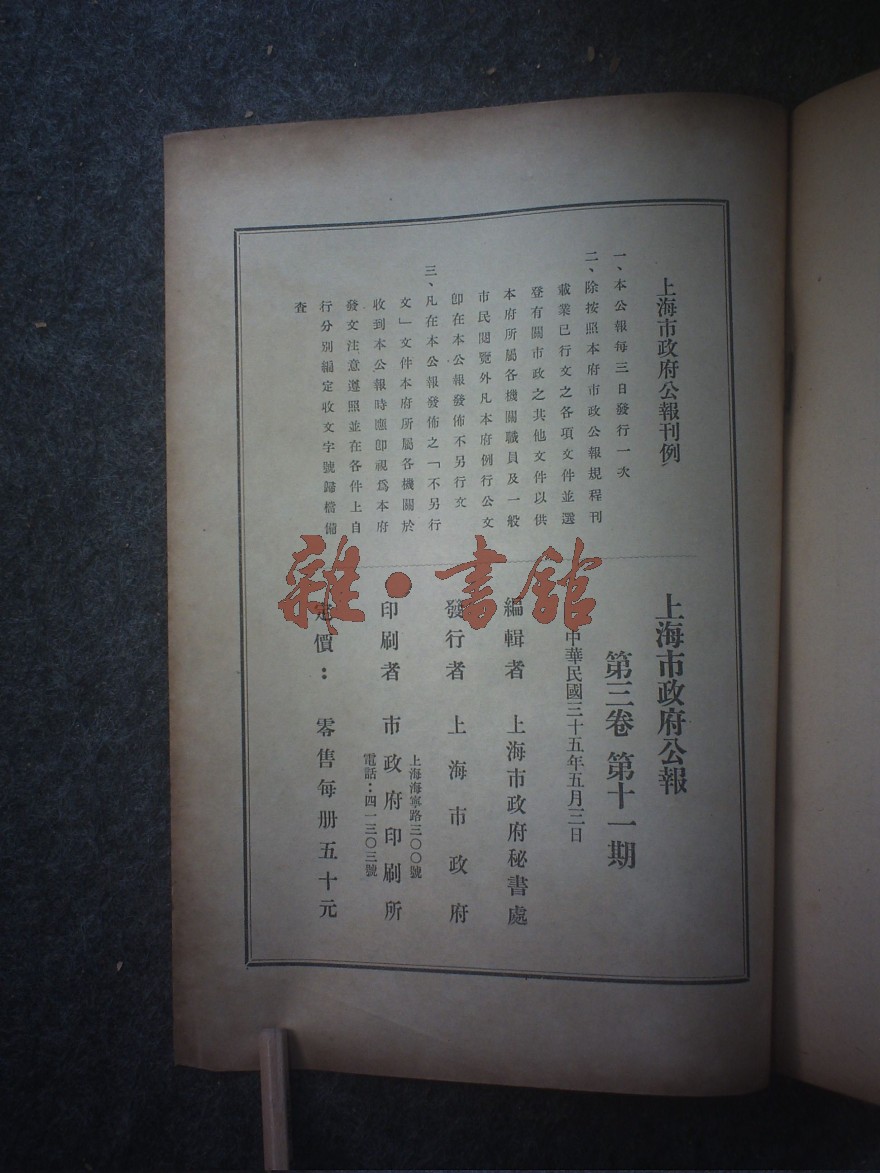 上海市政府公報刊例
一、本公報每三日發行一次
二、除按照本府市政公報規程刊
載業已行文之各項文件並選
登有關市政之其他文件以供
本府所屬各機關職員及一般
市民閱覽外凡本府例行公文
卽在本公報發佈不另行文
三、凡在本公報發佈之「不另行
文」文件本府所屬各機關於
收到本公報時應卽視爲本府
發文注意遵照並在各件上自
行分別編定收文字號歸檔備
查
上海市政府公報
第三卷 第十一期
中華民國三十五年五月三日
編輯者 上海市政府秘書處
發行者 上海市政府
印刷者 市政府印刷所
上海海寧路三〇〇號
電話：四一三〇三號
定價： 零售每册五十元
雜·書館